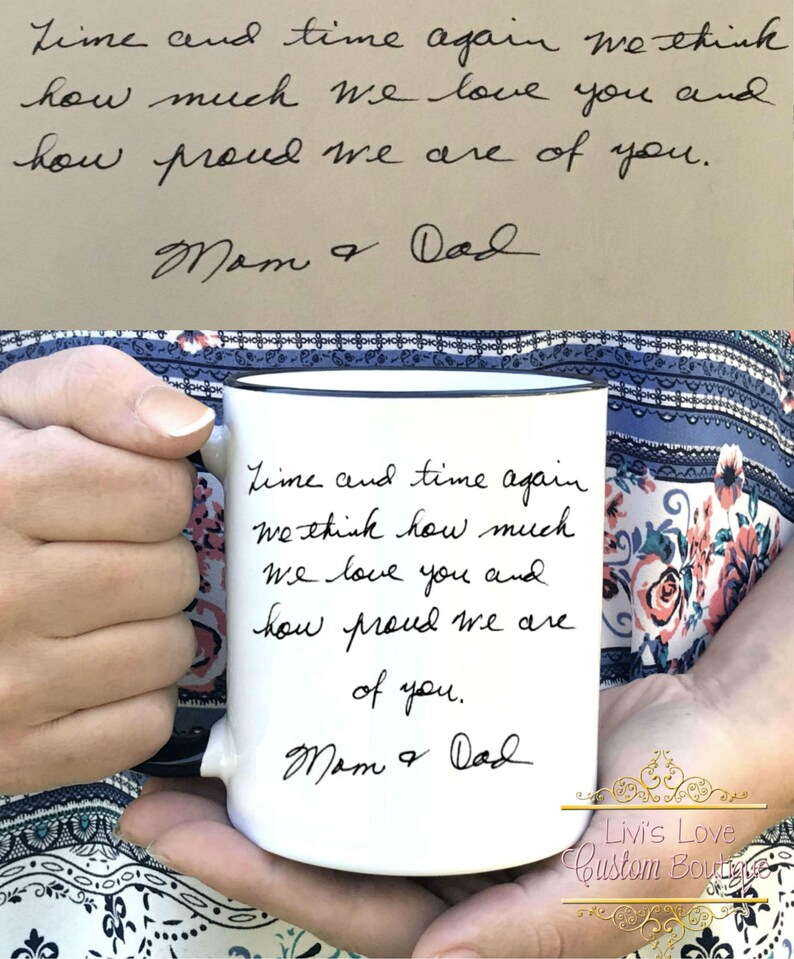 Time and time again we think
how much we love you and
how proud we are of you.
Mom & Dad
Time and time again
we think how much
we love you and
how proud we are
of you.
Mom & Dad
Livi's Love
Custom Boutique